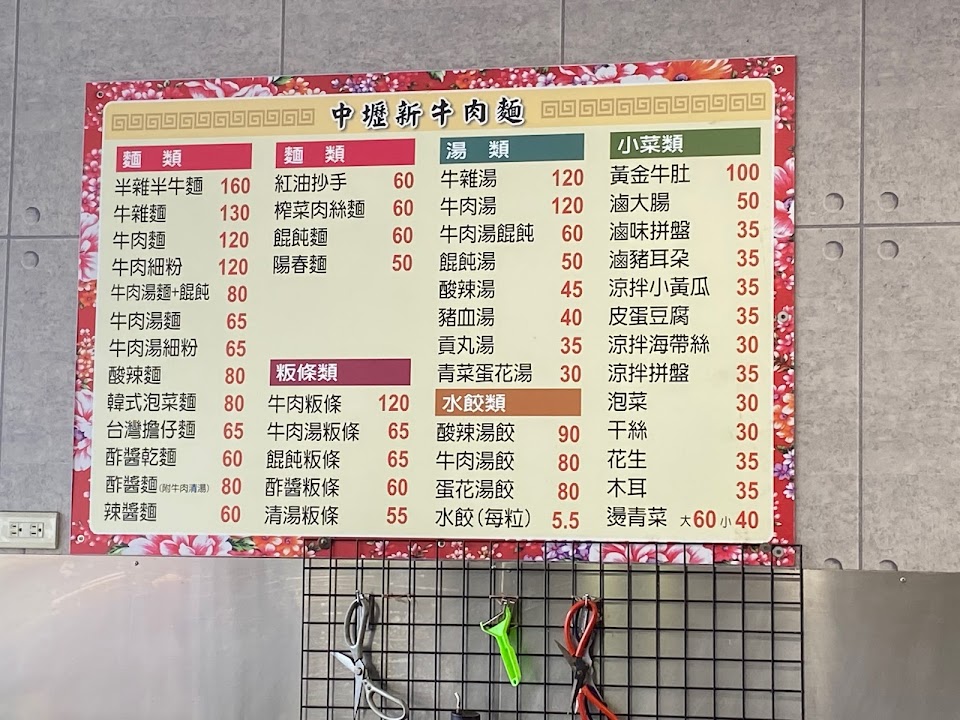 中壢新牛肉麵
麵 類
半雜半牛麵 160
牛雜麵 130
牛肉麵 120
牛肉細粉 120
牛肉湯麵+餛飩 80
牛肉湯麵 65
牛肉湯細粉 65
酸辣麵 80
韓式泡菜麵 80
台灣擔仔麵 65
酢醬乾麵 60
酢醬麵(附牛肉清湯) 80
辣醬麵 60
麵 類
紅油抄手 60
榨菜肉絲麵 60
餛飩麵 60
陽春麵 50
粄條類
牛肉粄條 120
牛肉湯粄條 65
餛飩粄條 65
酢醬粄條 60
清湯粄條 55
湯 類
牛雜湯 120
牛肉湯 120
牛肉湯餛飩 60
餛飩湯 50
酸辣湯 45
豬血湯 40
貢丸湯 35
青菜蛋花湯 30
水餃類
酸辣湯餃 90
牛肉湯餃 80
蛋花湯餃 80
水餃(每粒) 5.5
小菜類
黃金牛肚 100
滷大腸 50
滷味拼盤 35
滷豬耳朵 35
涼拌小黃瓜 35
皮蛋豆腐 35
涼拌海帶絲 30
涼拌拼盤 35
泡菜 30
干絲 30
花生 35
木耳 35
燙青菜 大60 小40